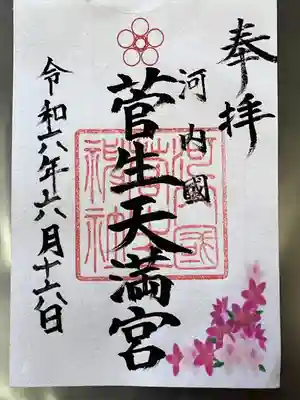 奉拝
河内國
菅生天満宮
令和六年六月十六日